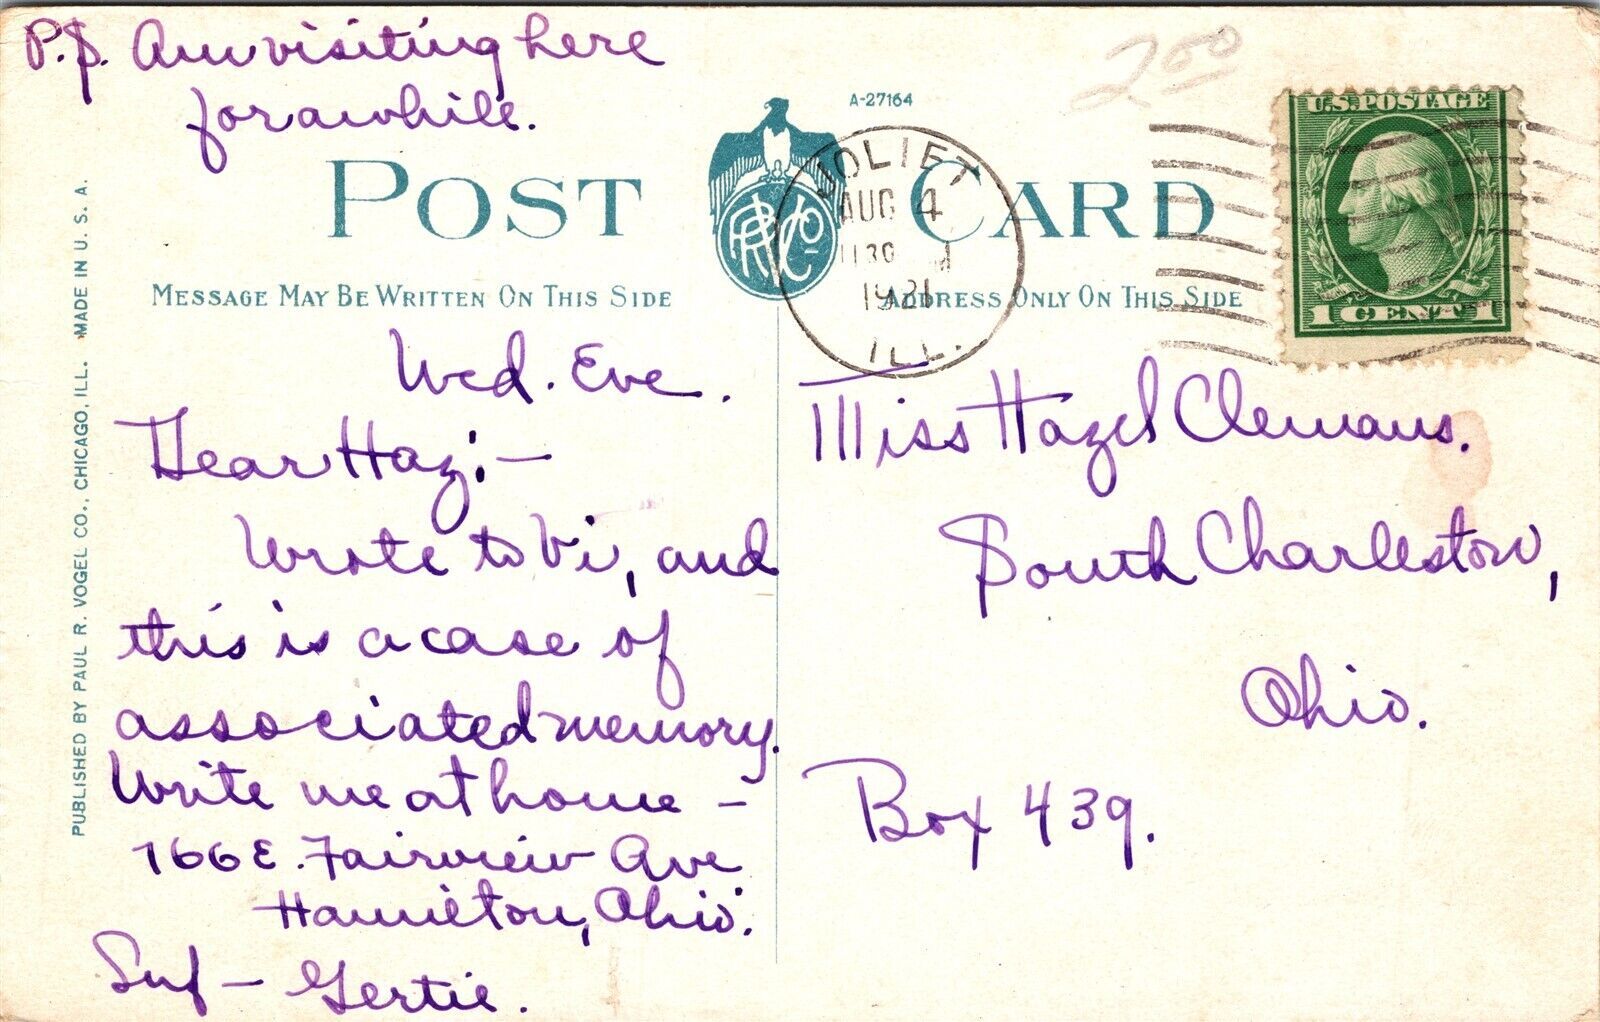 P.S. Am visiting here
for awhile.
2.00
A-27164
POST CARD
JOLIET
AUG 4
1130 M
1921
ILL.
U.S. POSTAGE
1 CENT 1
MESSAGE MAY BE WRITTEN ON THIS SIDE
ADDRESS ONLY ON THIS SIDE
PUBLISHED BY PAUL R. VOGEL CO., CHICAGO, ILL. MADE IN U. S. A.
Wed. Eve.
Dear Haz:—
Wrote to Vi, and
this is a case of
associated memory.
Write me at home –
166 E. Fairview Ave
Hamilton, Ohio.
– Gertie.
Miss Hazel Clemans.
South Charleston,
Ohio.
Box 439.